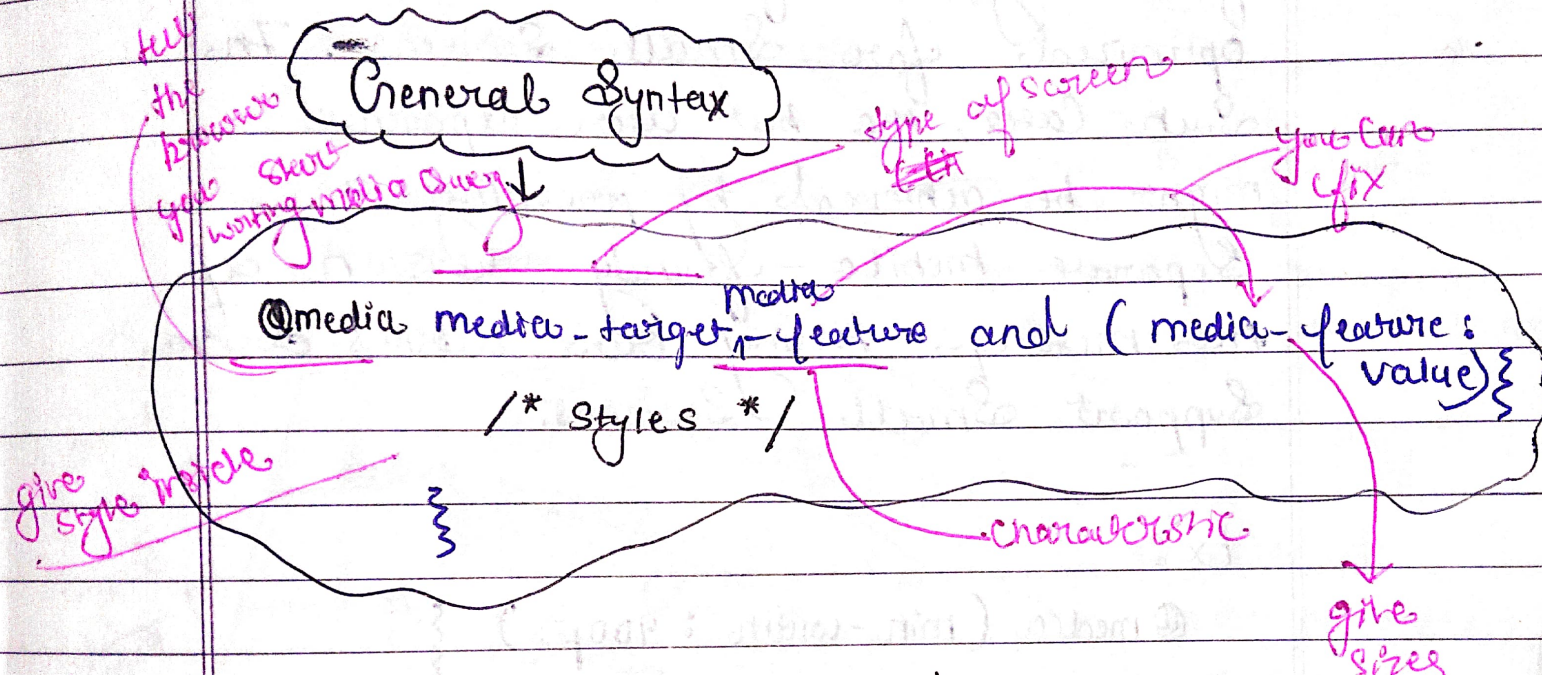 General Syntax
tell
the
browser
you start
writing media Query
type of screen
you can
fix
media
@media media-target, -feature and ( media-feature :
value) {
/* Styles */
give
style inside
}
characterstic
give
sizes
@ media (min-width :